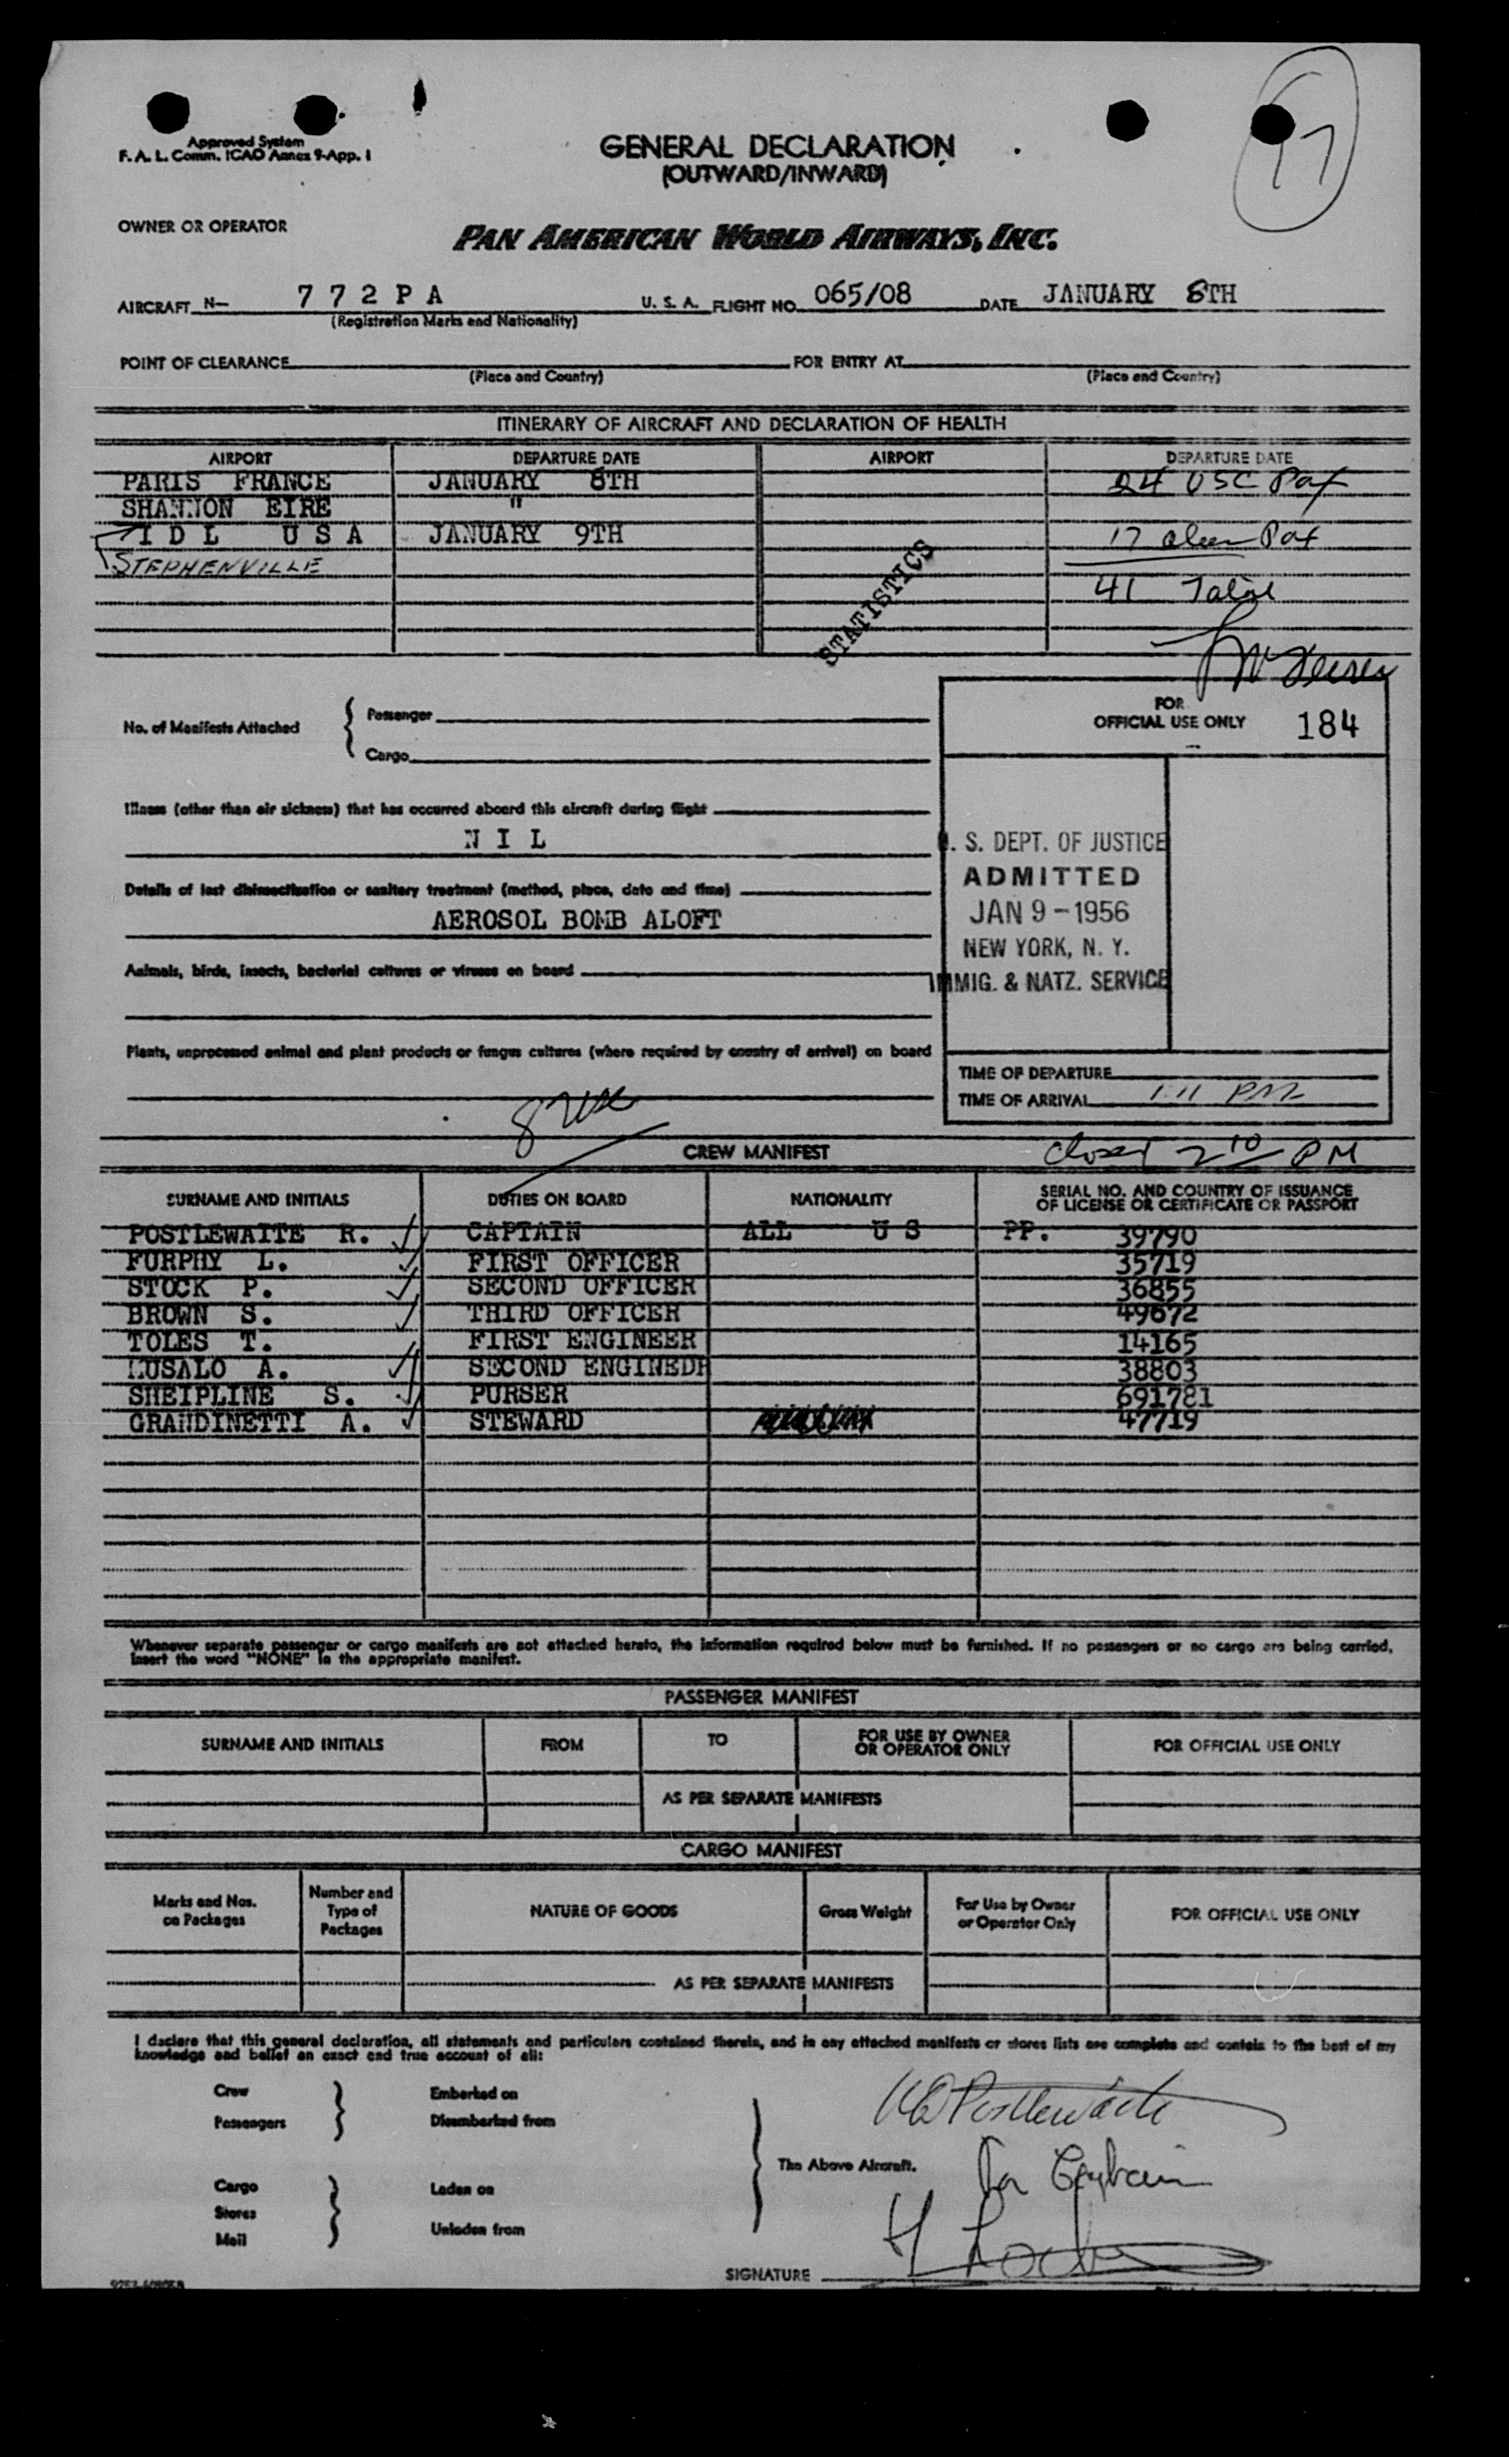 17
Approved System
F. A. L. Comm. ICAO Annex 9-App. 1
GENERAL DECLARATION
(OUTWARD/INWARD)
OWNER OR OPERATOR
PAN AMERICAN WORLD AIRWAYS, INC.
AIRCRAFT N— 7 7 2 P A U. S. A. FLIGHT NO. 065/08 DATE JANUARY 8TH
(Registration Marks and Nationality)
POINT OF CLEARANCE FOR ENTRY AT
(Place and Country) (Place and Country)
ITINERARY OF AIRCRAFT AND DECLARATION OF HEALTH
AIRPORT DEPARTURE DATE AIRPORT DEPARTURE DATE
PARIS FRANCE JANUARY 8TH 24 USC Pax
SHANNON EIRE "
I D L U S A JANUARY 9TH 17 alien Pax
STEPHENVILLE
41 Total
STATISTICS
No. of Manifests Attached { Passenger
Cargo
FOR
OFFICIAL USE ONLY 184
Illness (other than air sickness) that has occurred aboard this aircraft during flight
N I L
Details of last disinsectization or sanitary treatment (method, place, date and time)
AEROSOL BOMB ALOFT
Animals, birds, insects, bacterial cultures or viruses on board
Plants, unprocessed animal and plant products or fungus cultures (where required by country of arrival) on board
U. S. DEPT. OF JUSTICE
ADMITTED
JAN 9 - 1956
NEW YORK, N. Y.
IMMIG. & NATZ. SERVICE
TIME OF DEPARTURE
TIME OF ARRIVAL 1:11 PM
8 usc
CREW MANIFEST closed 2 10 PM
SURNAME AND INITIALS DUTIES ON BOARD NATIONALITY SERIAL NO. AND COUNTRY OF ISSUANCE
OF LICENSE OR CERTIFICATE OR PASSPORT
POSTLEWAITE R. CAPTAIN ALL U S PP. 39790
FURPHY L. FIRST OFFICER 35719
STOCK P. SECOND OFFICER 36855
BROWN S. THIRD OFFICER 49672
TOLES T. FIRST ENGINEER 14165
LUSALO A. SECOND ENGINEDR 38803
SHEIPLINE S. PURSER 691781
GRANDINETTI A. STEWARD 47719
Whenever separate passenger or cargo manifests are not attached hereto, the information required below must be furnished. If no passengers or no cargo are being carried,
insert the word "NONE" in the appropriate manifest.
PASSENGER MANIFEST
SURNAME AND INITIALS FROM TO FOR USE BY OWNER
OR OPERATOR ONLY FOR OFFICIAL USE ONLY
AS PER SEPARATE MANIFESTS
CARGO MANIFEST
Marks and Nos.
on Packages Number and
Type of
Packages NATURE OF GOODS Gross Weight For Use by Owner
or Operator Only FOR OFFICIAL USE ONLY
AS PER SEPARATE MANIFESTS
I declare that this general declaration, all statements and particulars contained therein, and in any attached manifests or stores lists are complete and contain to the best of my
knowledge and belief an exact and true account of all:
Crew Embarked on
Passengers Disembarked from
Postlewaite
The Above Aircraft.
for Captain
Cargo Laden on
Stores
Mail Unladen from
SIGNATURE